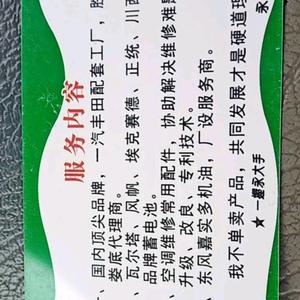 服务内容
、国内顶尖品牌，一汽丰田配套工厂，
娄底代理商。
、瓦尔塔、风帆、埃克赛德、正统、川西
品牌蓄电池。
空调维修常用配件，协助解决维修难
升级、改良、专利技术。
东风嘉实多机油，厂设服务商。
我不单卖产品，共同发展才是硬道理
★一握永大手 永